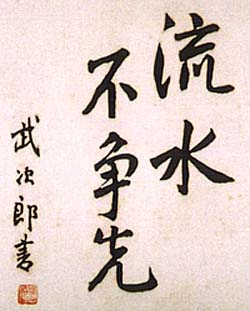 流水
不争先
武次郎書